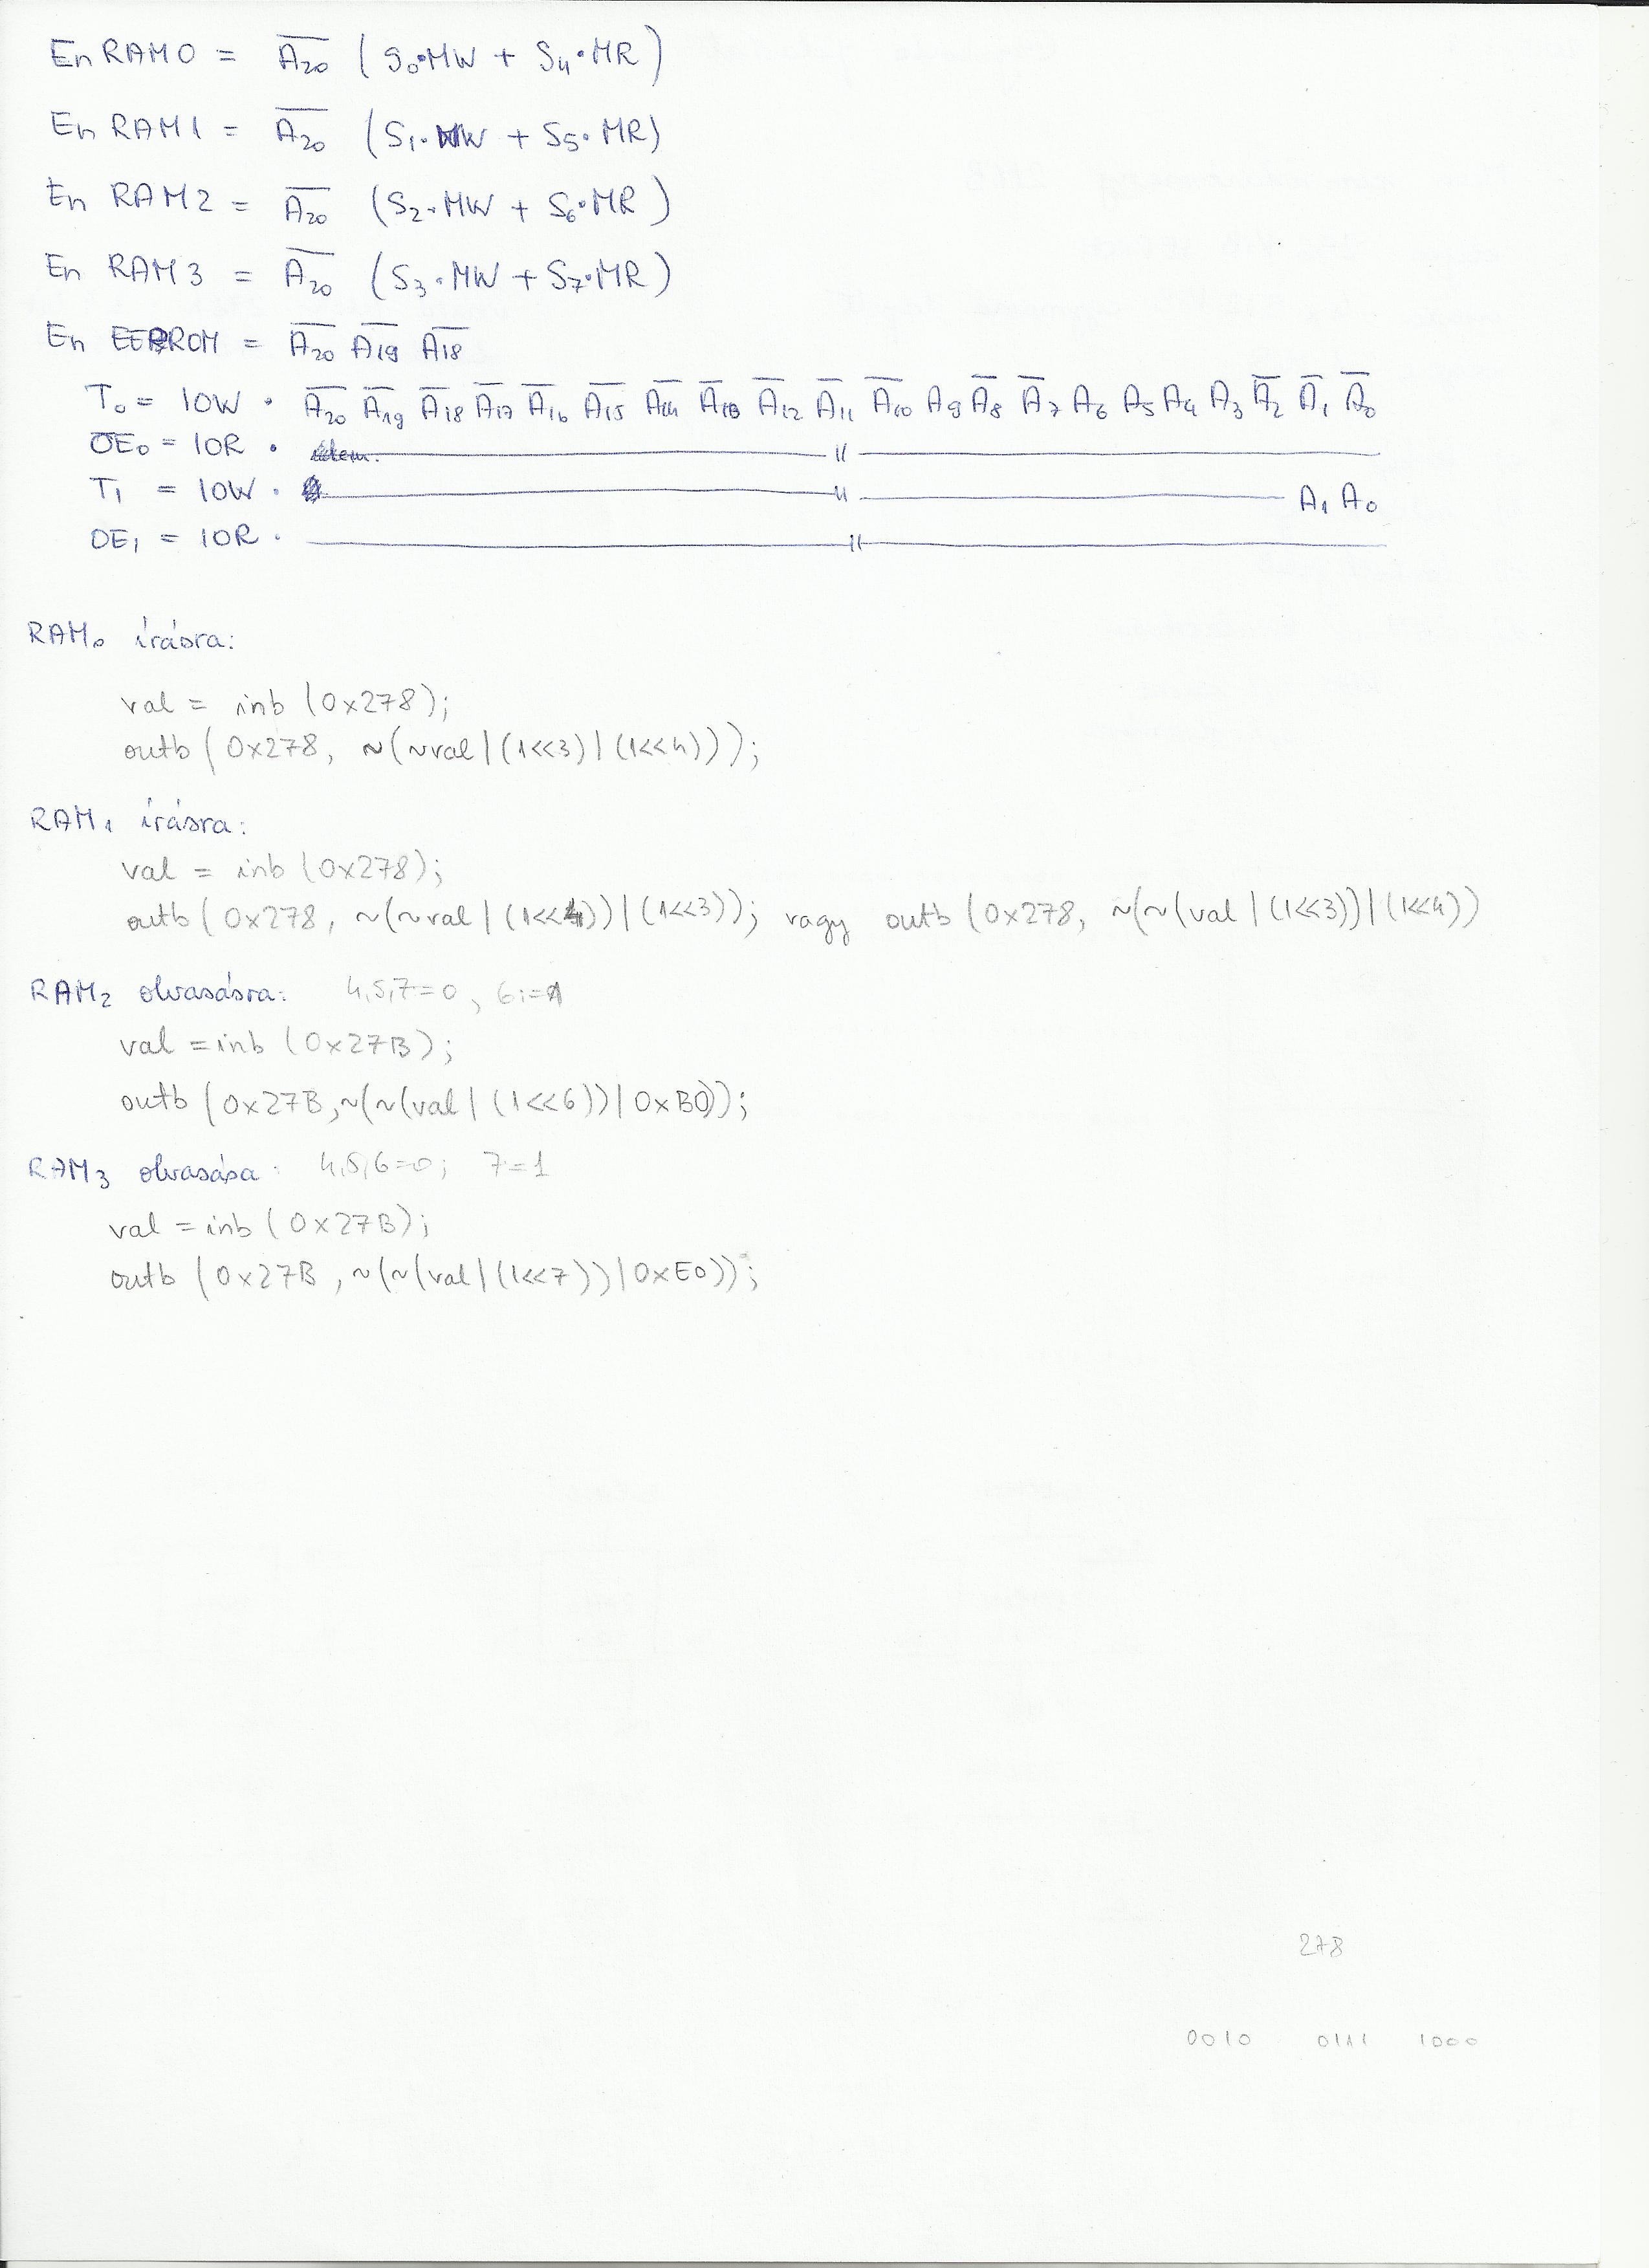 En RAM0 = A̅₂₀ (S₀·MW + S₄·MR)
En RAM1 = A̅₂₀ (S₁·MW + S₅·MR)
En RAM2 = A̅₂₀ (S₂·MW + S₆·MR)
En RAM3 = A̅₂₀ (S₃·MW + S₇·MR)
En EEPROM = A̅₂₀ A̅₁₉ A̅₁₈
T₀ = IOW · A̅₂₀ A̅₁₉ A̅₁₈ A̅₁₇ A̅₁₆ A̅₁₅ A̅₁₄ A̅₁₃ A̅₁₂ A̅₁₁ A̅₁₀ A₉ A̅₈ A̅₇ A₆ A₅ A₄ A₃ A̅₂ A̅₁ A̅₀
O̅E₀ = IOR · —— 〃 ——
T₁ = IOW · —— 〃 —— A₁ A₀
OE₁ = IOR · —— 〃 ——
RAM₀ írásra:
val = inb (0x278);
outb (0x278, ~(~val | (1<<3) | (1<<4)));
RAM₁ írásra:
val = inb (0x278);
outb (0x278, ~(~val | (1<<4)) | (1<<3)); vagy outb (0x278, ~(~(val | (1<<3)) | (1<<4))
RAM₂ olvasásra: 4,5,7=0, 6:=1
val = inb (0x27B);
outb (0x27B, ~(~(val | (1<<6)) | 0xB0));
RAM₃ olvasása: 4,5,6=0; 7=1
val = inb (0x27B);
outb (0x27B, ~(~(val | (1<<7)) | 0xE0));
278
0010 0111 1000